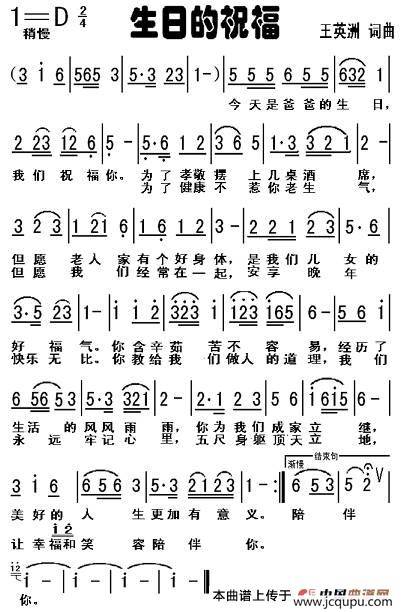 生日的祝福
1=D 2/4
稍慢
王英洲 词曲
(3 i 6 | 565 63 | 5·3 23 | 1-) | 5 5 5 | 6 5 5 | 632 1 |
今天是爸爸的生 日,
2 23 12 6 | 5 - | 5·6 | 1 2 | 6 5 5 | 3·3 2 1 | 2·3 |
我们祝福你。为了孝敬摆 上几桌酒 席,
为了健康不 惹你老生 气,
3 2 3 | 5·6 | 1 2 1 | 6 1 6 | 3· 2 | 2 2 1 2 | 5·6 |
但愿 老人 家有个好身体,是我们儿 女的
但愿 我 们经常在一起,安享 晚 年
好 福 气。你含辛茹 苦不 容 易,经历了
快乐 无 比。你教给我 们做人的道理,我们
6 56 53 | 5·5 | 321 | 2 - | 2·1 | 5 6 5 3 | 2 1 | i 6i5 |
生活 的风风雨 雨,你为我们成家立 继,
永 远牢记心 里,五尺身躯顶天立 地,
渐慢
结束句
美好的人 生更加有意义。陪 伴
让幸福和笑 容陪伴 你。
你。
本曲谱上传于 中国曲谱网
www.jcqupu.com